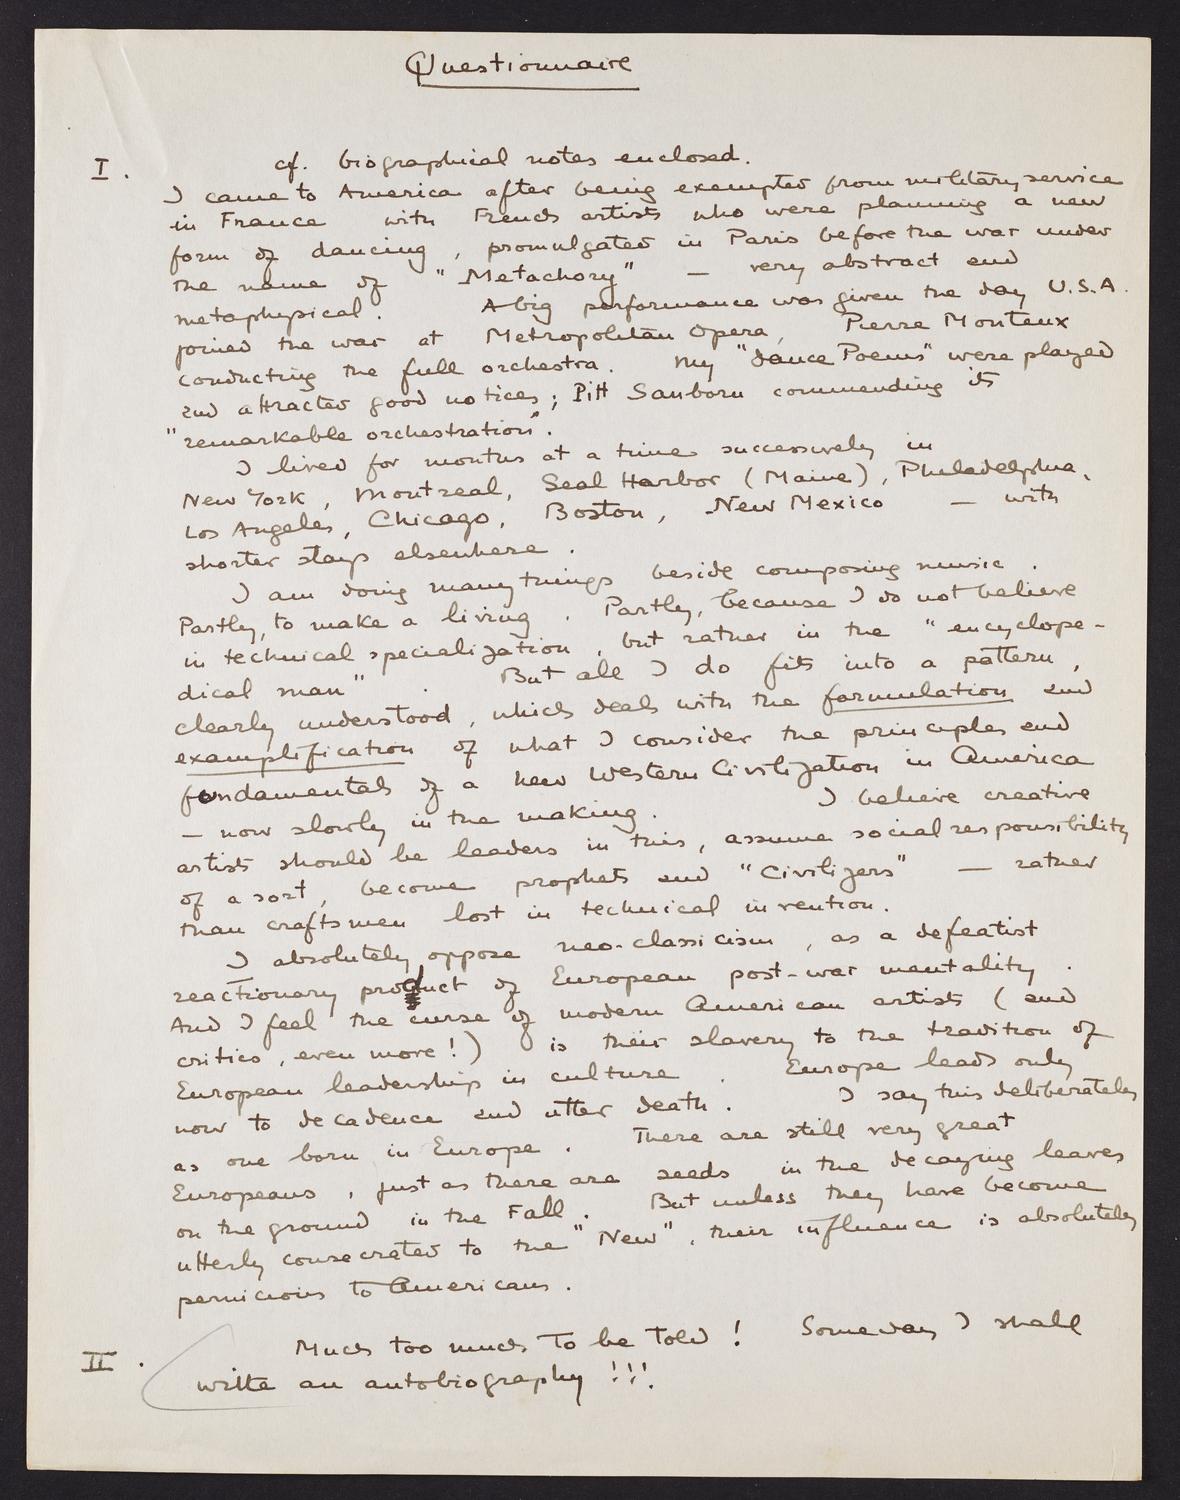 Questionnaire
I. cf. biographical notes enclosed.
I came to America after being exempted from military service
in France with French artists who were planning a new
form of dancing, promulgated in Paris before the war under
the name of "Metachory" — very abstract and
metaphysical. A big performance was given the day U.S.A.
joined the war at Metropolitan Opera, Pierre Monteux
conducting the full orchestra. My "Dance Poems" were played
and attracted good notices; Pitt Sanborn commending its
"remarkable orchestration".
I lived for months at a time successively in
New York, Montreal, Seal Harbor (Maine), Philadelphia,
Los Angeles, Chicago, Boston, New Mexico — with
shorter stays elsewhere.
I am doing many things beside composing music.
Partly, to make a living. Partly, because I do not believe
in technical specialization, but rather in the "encyclope-
dical man". But all I do fits into a pattern,
clearly understood, which deals with the formulation and
examplification of what I consider the principles and
fundamentals of a new Western Civilization in America
— now slowly in the making. I believe creative
artists should be leaders in this, assume social responsibility
of a sort, become prophets and "Civilizers" — rather
than craftsmen lost in technical invention.
I absolutely oppose neo-classicism, as a defeatist
reactionary product of European post-war mentality.
And I feel the curse of modern American artists (and
critics, even more!) is their slavery to the tradition of
European leadership in culture. Europe leads only
now to decadence and utter death. I say this deliberately
as one born in Europe. There are still very great
Europeans, just as there are seeds in the decaying leaves
on the ground in the Fall. But unless they have become
utterly consecrated to the "New", their influence is absolutely
pernicious to Americans.
II. Much too much to be told! Someday I shall
write an autobiography!!!